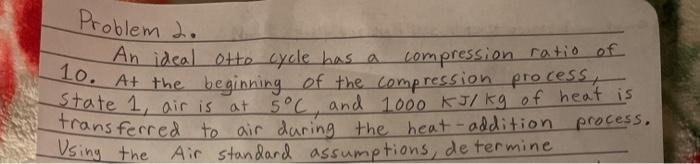 Problem 2.
An ideal otto cycle has a compression ratio of
10. At the beginning of the compression process,
State 1, air is at 5°C, and 1000 KJ/kg of heat is
transferred to air during the heat-addition process.
Using the Air standard assumptions, determine